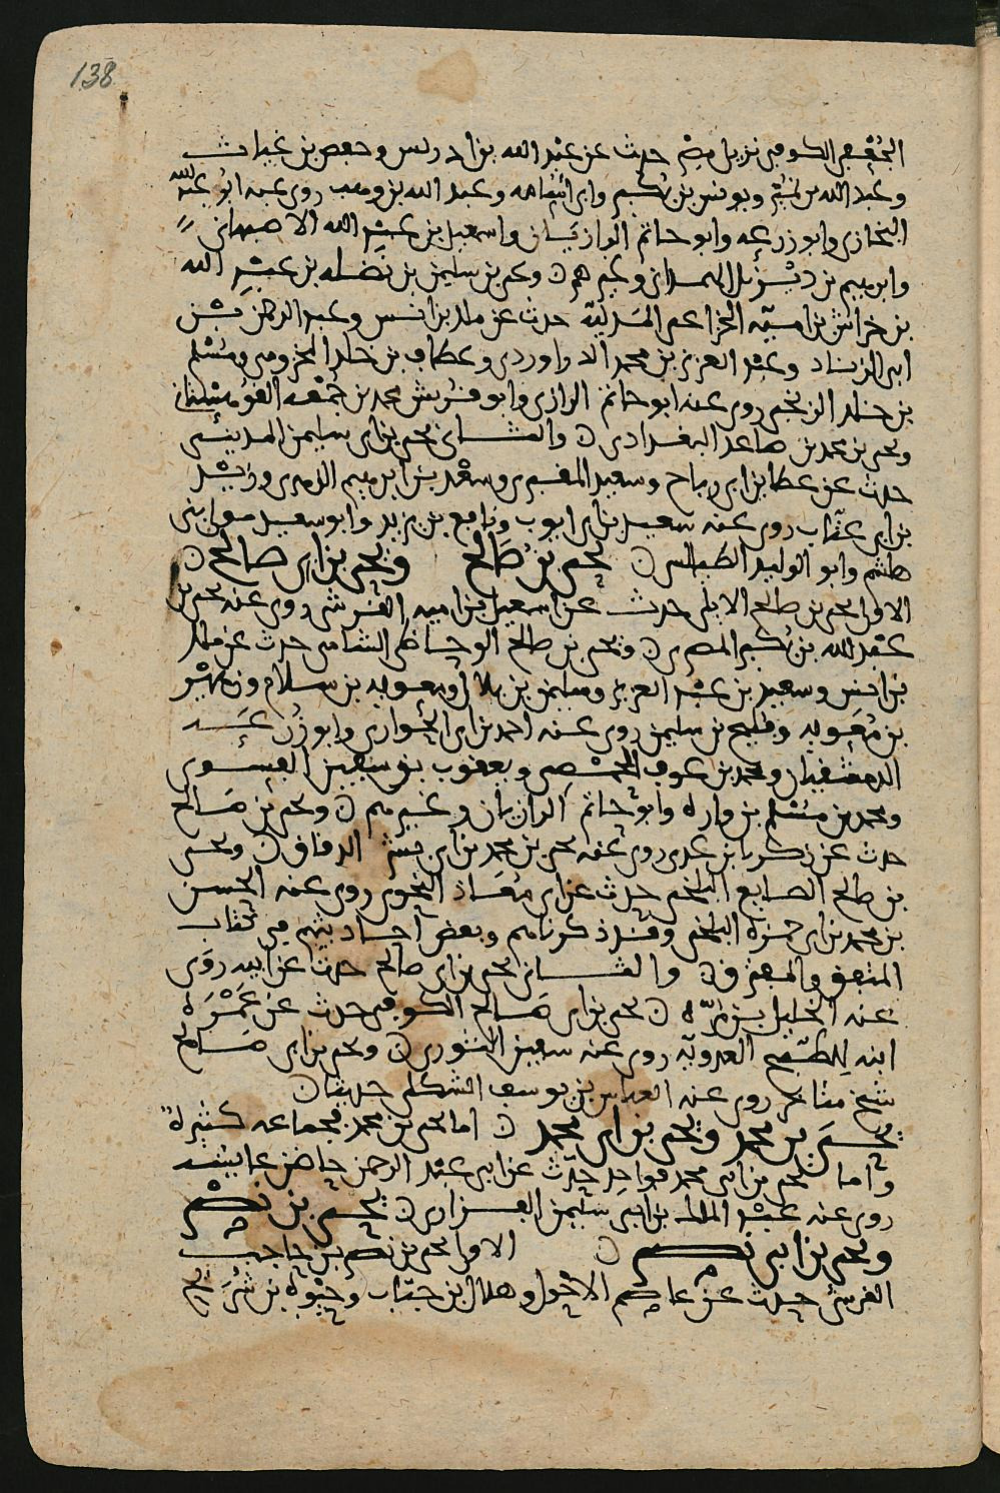 138
الجعفي الكوفي نزيل مصر حدث عن عبد الله بن ادريس وحفص بن غياث
وعبد الله بن نمير ويونس بن بكير وابي اسامه وعبد الله بن وهب روى عنه ابو عبد الله
البخاري وابو زرعه وابو حاتم الرازيان واسمعيل بن عبد الله الاصبهاني
وابرهيم بن ديزيل الهمداني وغيرهم ويحيى بن سليمن بن نضله بن عبد الله
بن خراش بن اميه الخزاعي المديني حدث عن ملك بن انس وعبد الرحمن بن
ابي الزناد وعبد العزيز بن محمد الدراوردي وعطاف بن خلد المخزومي ومسلم
بن خلد الزنجي روى عنه ابو حاتم الرازي وابو قريش محمد بن جمعه القوهستاني
ويحيى بن محمد بن صاعد البغدادي والثاني يحيى بن ابي سليمن المديني
حدث عن عطا بن ابي رباح وسعيد المقبري وسعد بن ابرهيم الزهري وزيد
بن ابي عتاب روى عنه سعيد بن ابي ايوب ونافع بن يزيد وابو سعيد مولى بني
هاشم وابو الوليد الطيالسي يحيى بن صالح ويحيى بن ابي صالح
الاول يحيى بن صالح الايلي حدث عن اسمعيل بن اميه القرشي روى عنه يحيى بن
عبد الله بن بكير المصري ويحيى بن صالح الوحاظي الشامي حدث عن ملك
بن انس وسعيد بن عبد العزيز وسليمن بن بلال ومعويه بن سلام وزهير
بن معويه وفليح بن سليمن روى عنه احمد بن ابي الحواري وابو زرعه
الدمشقيان ومحمد بن عوف الحمصي ويعقوب بن سفين الفسوي
ومحمد بن مسلم بن واره وابو حاتم الرازيان وغيرهم ويحيى بن صالح
حدث عن زكريا بن عدي روى عنه يحيى بن محمد بن ابي بشر الدقاق ويحيى
بن صالح الصايغ البلخي حدث عن ابي معاذ النحوي روى عنه الحسن
بن محمد بن ابي حمزه البلخي وقد ذكرناهم وبعض احاديثهم في كتاب
المتفق والمفترق والثاني يحيى بن ابي صالح حدث عن ابيه روى
عنه الخليل بن مره يحيى بن ابي صالح الكوفي حدث عن عمره
ابنه الطبيخ العدويه روى عنه سفين الثوري ويحيى بن ابي صالح
شيخ متاخر روى عنه العباس بن يوسف الشكلي حديثا
يحيى بن محمد ويحيى بن ابي محمد اما يحيى بن محمد فجماعه كثيرة
واما يحيى بن ابي محمد فواحد حدث عن ابي عبد الرحمن حاضن عايشه
روى عنه عبد الملك بن ابي سليمن الفزاري يحيى بن نصر
ويحيى بن ابي نصر الاول يحيى بن نصر بن حاجب
القرشي حدث عن عاصم الاحول وهلال بن خباب وحيوه بن شريح